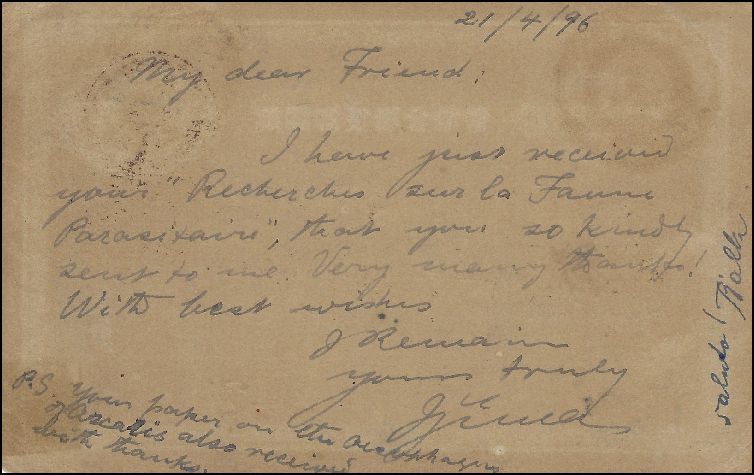 21/4/96
My dear Friend:
I have just received
your "Recherches sur la Faune
Parasitaire", that you so kindly
sent to me. Very many thanks!
With best wishes
I Remain
yours truly
P.S. your paper on the oesophagus
of Ascaris also received
with thanks.
saluto!